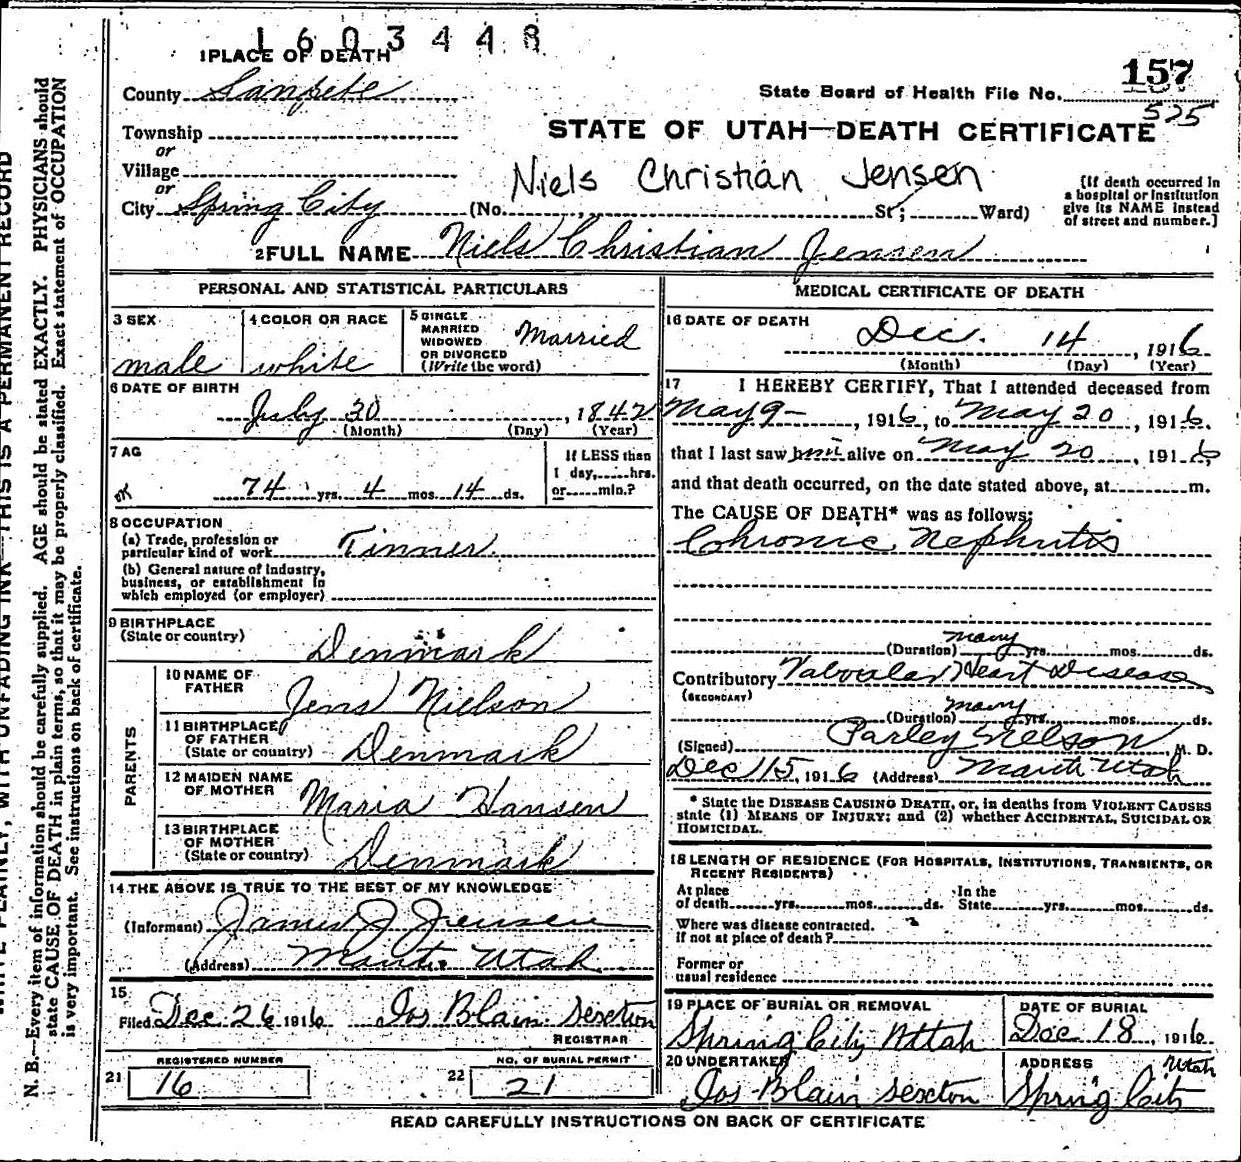 1603448
1 PLACE OF DEATH
County Sanpete
State Board of Health File No. 157
525
Township
or
Village
or
City Spring City
STATE OF UTAH—DEATH CERTIFICATE
Niels Christian Jensen
(No. , St; Ward)
(If death occurred in
a hospital or institution
give its NAME instead
of street and number.]
2 FULL NAME Niels Christian Jensen
PERSONAL AND STATISTICAL PARTICULARS
3 SEX
male
4 COLOR OR RACE
white
5 SINGLE
MARRIED
WIDOWED
OR DIVORCED
(Write the word)
Married
6 DATE OF BIRTH
July 30, 1842
(Month) (Day) (Year)
7 AG
74 yrs. 4 mos. 14 ds.
If LESS than
1 day, hrs.
or min.?
8 OCCUPATION
(a) Trade, profession or
particular kind of work Tinner.
(b) General nature of Industry,
business, or establishment in
which employed (or employer)
9 BIRTHPLACE
(State or country) Denmark
PARENTS
10 NAME OF
FATHER Jens Nielson
11 BIRTHPLACE
OF FATHER
(State or country) Denmark
12 MAIDEN NAME
OF MOTHER Maria Hansen
13 BIRTHPLACE
OF MOTHER
(State or country) Denmark
14 THE ABOVE IS TRUE TO THE BEST OF MY KNOWLEDGE
(Informant) James J Jensen
(Address) Manti Utah
15
Filed Dec 26 1916 Jos Blain Sexton
REGISTRAR
REGISTERED NUMBER
21 16
NO. OF BURIAL PERMIT
22 21
MEDICAL CERTIFICATE OF DEATH
16 DATE OF DEATH
Dec. 14, 1916
(Month) (Day) (Year)
17 I HEREBY CERTIFY, That I attended deceased from
May 9-, 1916, to May 20, 1916.
that I last saw him alive on May 20, 1916,
and that death occurred, on the date stated above, at m.
The CAUSE OF DEATH* was as follows:
Chronic Nephritis
(Duration) many yrs. mos. ds.
Contributory Valvular Heart Disease
(SECONDARY)
(Duration) many yrs. mos. ds.
(Signed) Parley Nelson, M. D.
Dec 15, 1916 (Address) Manti Utah
* State the DISEASE CAUSING DEATH, or, in deaths from VIOLENT CAUSES
state (1) MEANS OF INJURY; and (2) whether ACCIDENTAL, SUICIDAL OR
HOMICIDAL.
18 LENGTH OF RESIDENCE (FOR HOSPITALS, INSTITUTIONS, TRANSIENTS, OR
RECENT RESIDENTS)
At place
of death yrs. mos. ds.
In the
State yrs. mos. ds.
Where was disease contracted.
If not at place of death?
Former or
usual residence
19 PLACE OF BURIAL OR REMOVAL
Spring City Utah
DATE OF BURIAL
Dec 18, 1916
20 UNDERTAKER
Jos Blain Sexton
ADDRESS
Utah
Spring City
READ CAREFULLY INSTRUCTIONS ON BACK OF CERTIFICATE
WITH UNFADING INK—THIS IS A PERMANENT RECORD
N. B.—Every item of information should be carefully supplied. AGE should be stated EXACTLY. PHYSICIANS should
state CAUSE OF DEATH in plain terms, so that it may be properly classified. Exact statement of OCCUPATION
is very important. See instructions on back of certificate.